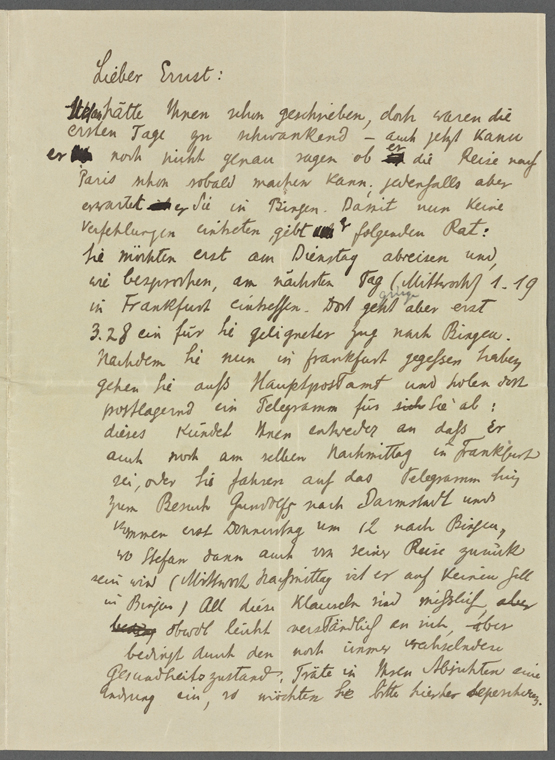 Lieber Ernst:
Stefan hätte Ihnen schon geschrieben, doch waren die
ersten Tage zu schwankend – auch jetzt kann
er noch nicht genau sagen ob er die Reise nach
Paris schon sobald machen kann, jedenfalls aber
erwartet er Sie in Bingen. Damit nun keine
Verfehlungen eintreten gibt er folgenden Rat:
Sie möchten erst am Dienstag abreisen und,
wie besprochen, am nächsten Tag (Mittwoch) 1.19
in Frankfurt eintreffen. Dort geht aber erst
3.28 ein für Sie geeigneter Zug nach Bingen.
Nachdem Sie nun in Frankfurt gegessen haben
gehen Sie aufs Hauptpostamt und holen dort
postlagernd ein Telegramm für Sie ab:
dieses kündet Ihnen entweder an dass Er
auch noch am selben Nachmittag in Frankfurt
sei, oder Sie fahren auf das Telegramm hin
zum Besuch Gundolfs nach Darmstadt und
kommen erst Donnerstag um 12 nach Bingen,
wo Stefan dann auch von seiner Reise zurück
sein wird (Mittwoch Nachmittag ist er auf keinen Fall
in Bingen) All diese Klauseln sind misslich,
obwol leicht verständlich an sich, aber
bedingt durch den noch immer wechselnden
Gesundheitszustand. Träte in Ihren Absichten eine
ändrung ein, so möchten Sie bitte hierher depeschieren.